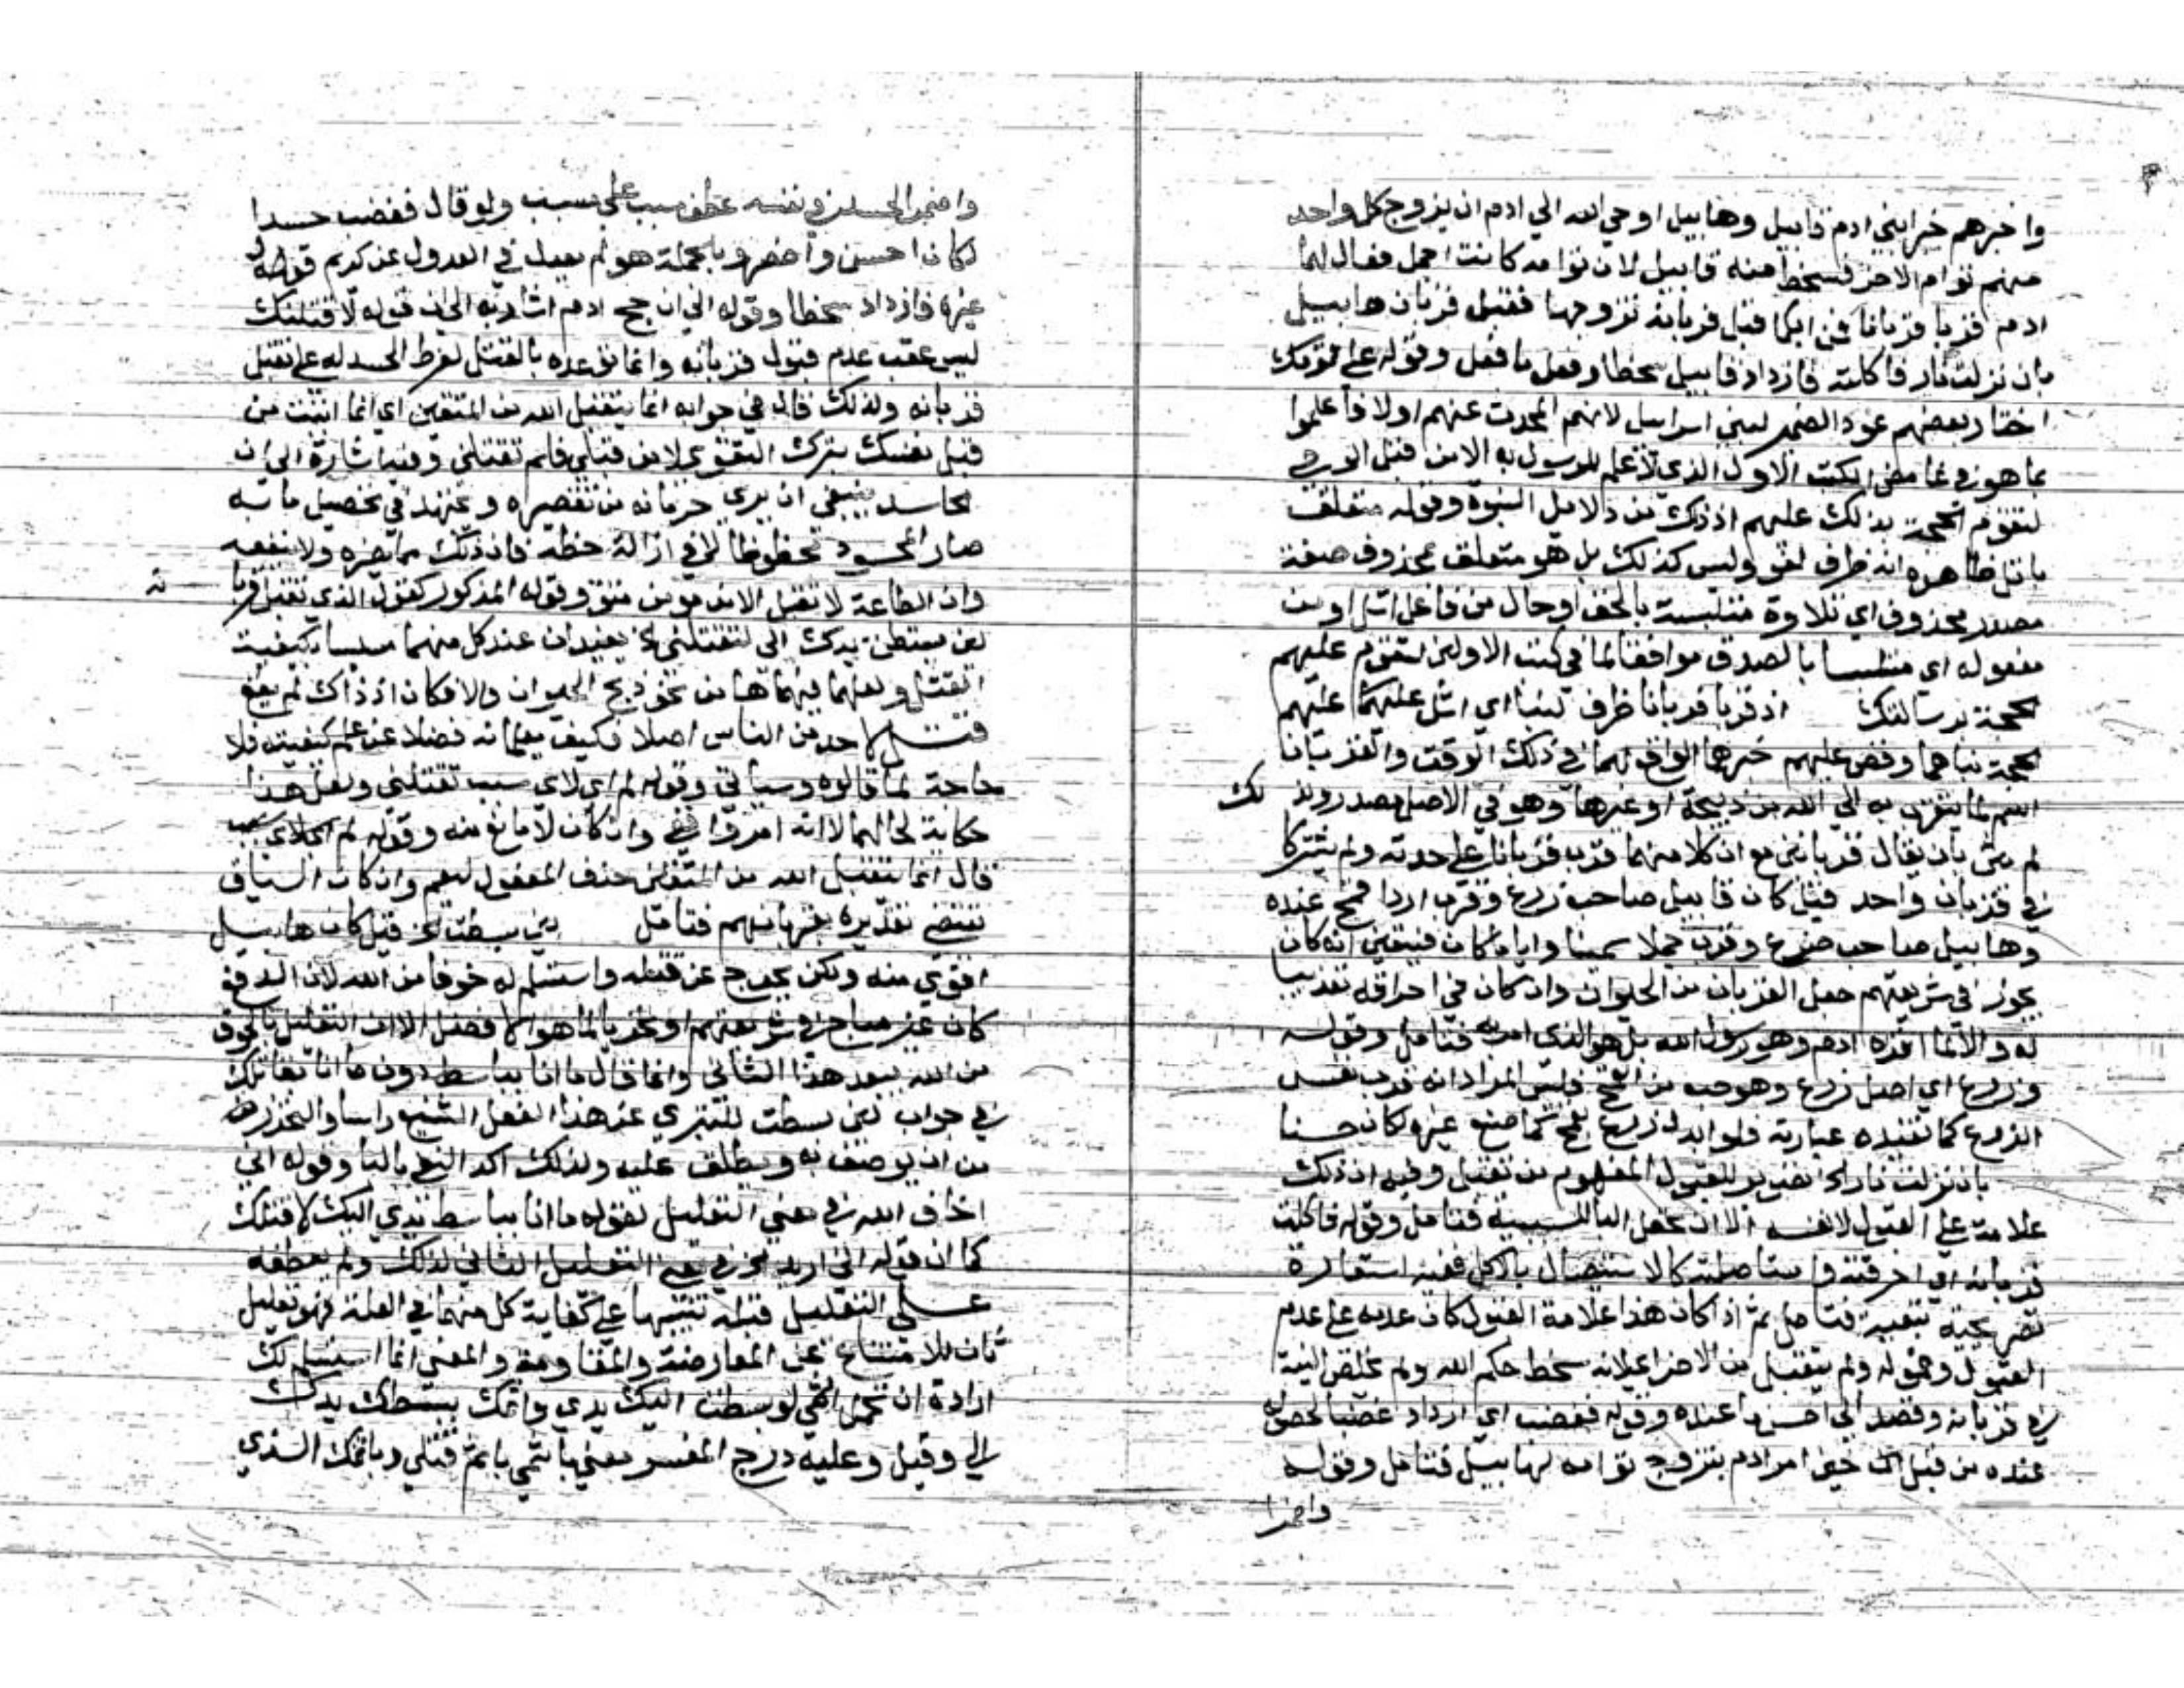 واخبرهم خبر ابني ادم قابيل وهابيل اوحي الله الي ادم ان يزوج كل واحد
منهم توام الاخر فسخط منه قابيل لان توامه كانت اجمل فقال لهما
ادم قربا قربانا فمن ايكما قبل قربانه تزوجها فقبل قربان هابيل
بان نزلت نار فاكلته فازداد قابيل سخطا وفعل ما فعل وقوله على قومك
اختار بعضهم عود الضمير لبني اسرايل لانهم المحدث عنهم اولا فاعلموا
بما هو في غامض الكتب الاول الذي لا علم للرسول به الا من قبل الوحي
لتقوم الحجة بذلك عليهم اذ ذلك من دلايل النبوة وقوله متعلق
باتل ظاهره انه ظرف لغو وليس كذلك بل هو متعلق بمحذوف صفة
مصدر محذوف اي تلاوة متلبسة بالحق او حال من فاعل اتل او من
مفعوله اي متلبسا بالصدق موافقا لما في كتب الاولين لتقوم عليهم
الحجة برسالتك اذ قربا قربانا ظرف لنبا اي اتل عليهم
نباهما وقص عليهم خبرهما الواقع لهما في ذلك الوقت والقربان
اسم لما يتقرب به الي الله من ذبيحة او غيرها وهو في الاصل مصدر ولذلك
لم يثن بان يقال قربانين مع ان كلا منهما قرب قربانا على حدته ولم يشتركا
في قربان واحد قيل كان قابيل صاحب زرع وقرب اردا قمح عنده
وهابيل صاحب ضرع وقرب جملا سمينا وايا ما كان فيتعين انه كان
يجوز في شريعتهم جعل القربان من الحيوان وان كان في احراقه تعذيبا
له والا لما اقره ادم وهو رسول الله بل هو الذي امر به فتامل وقوله
وزرع اي اصل زرع وهو حبه من القمح فليس المراد انه قرب نفس
الزرع كما تفيده عبارته فلو ابدل زرع بقمح كما صنع غيره لكان حسنا
بان نزلت نار الخ تصوير للقبول المفهوم من تقبل وفيه ان ذلك
علامة على القبول لانفسه الا ان تجعل البا للسببية فتامل وقوله فاكلت
قربانه اي احرقته واستاصلته كالاستيصال بالاكل ففيه استعارة
تصريحية تبعية فتامل ثم اذا كان هذا علامة القبول كان عدمه على عدم
القبول وقوله ولم يتقبل من الاخر اي لانه سخط حكم الله ولم يخلص النية
في قربانه وقصد الي اخس ما عنده وقوله فغضب اي ازداد غضبا لحصوله
عنده من قبل الي حين امر ادم بتزوج توامه لهابيل فتامل وقوله
واضمر
واضمر الحسد في نفسه عطف سبب على مسبب ولو قال فغضب حسدا
لكان احسن واخصر وبالجملة هو لم يصب في العدول عن كريم قوله
غيره فازداد سخطا وقوله الي ان حج ادم اشار به الي ان قوله لاقتلنك
ليس عقب عدم قبول قربانه وانما توعده بالقتل لفرط الحسد له على تقبل
قربانه ولذلك قال في جوابه انما يتقبل الله من المتقين اي انما اتيت من
قبل نفسك بترك التقوي لا من قبلي فلم تقتلني وفيه اشارة الي ان
الحاسد ينبغي ان يري حرمانه من تقصيره ويجتهد في تحصيل ما به
صار المحسود محظوظا لا في ازالة حظه فان ذلك مما يضره ولا ينفعه
وان الطاعة لا تقبل الا من مومن متق وقوله المذكور كقوله الذي تقبل قربانه
لين بسطت يدك الي لتقتلني الخ يفيد ان عند كل منهما مساسا بكيفية
القتل ولعلهما فهماها من نحو ذبح الحيوان والا فكان اذ ذاك لم يقع
قتل لاحد من الناس اصلا فكيف يعلمانه فضلا عن علم كيفيته فلا
حاجة لما قالوه وسياتي وقوله لم اي لاي سبب تقتلني ولعل هذا
حكاية لحالهما لا انه امر واقع وان كان لا مانع منه وقوله لم اي لاي سبب
قال انما يتقبل الله من المتقين حذف المفعول ليعم وان كان السياق
يقتضي تقديره بقربانهم فتامل لين بسطت الخ قيل كان هابيل
اقوي منه ولكن تحرج عن قتله واستسلم له خوفا من الله لان الدفع
كان غير مباح في شريعتهم او تحريا لما هو الافضل الا ان التعليل بالخوف
من الله يبعد هذا الثاني وانما قال ما انا بباسط دون ما انا بقاتلك
في جواب لين بسطت للتبري عن هذا الفعل الشنيع راسا والتحرز
من ان يوصف به ويطلق عليه ولذلك اكد النفي بالبا وقوله اني
اخاف الله في معني التعليل لقوله ما انا بباسط يدي اليك لاقتلك
كما ان قوله اني اريد الخ في معني التعليل الثاني لذلك ولم يعطفه
على التعليل قبله تنبيها على كفاية كل منهما في العلة فهو تعليل
ثان للامتناع عن المعارضة والمقاومة والمعني انما استسلم لك
ارادة ان تحمل اثمي لو بسطت اليك يدي واثمك ببسطك يدك
الي وقيل وعليه درج المفسر معني باثمي باثم قتلي وباثمك الذي